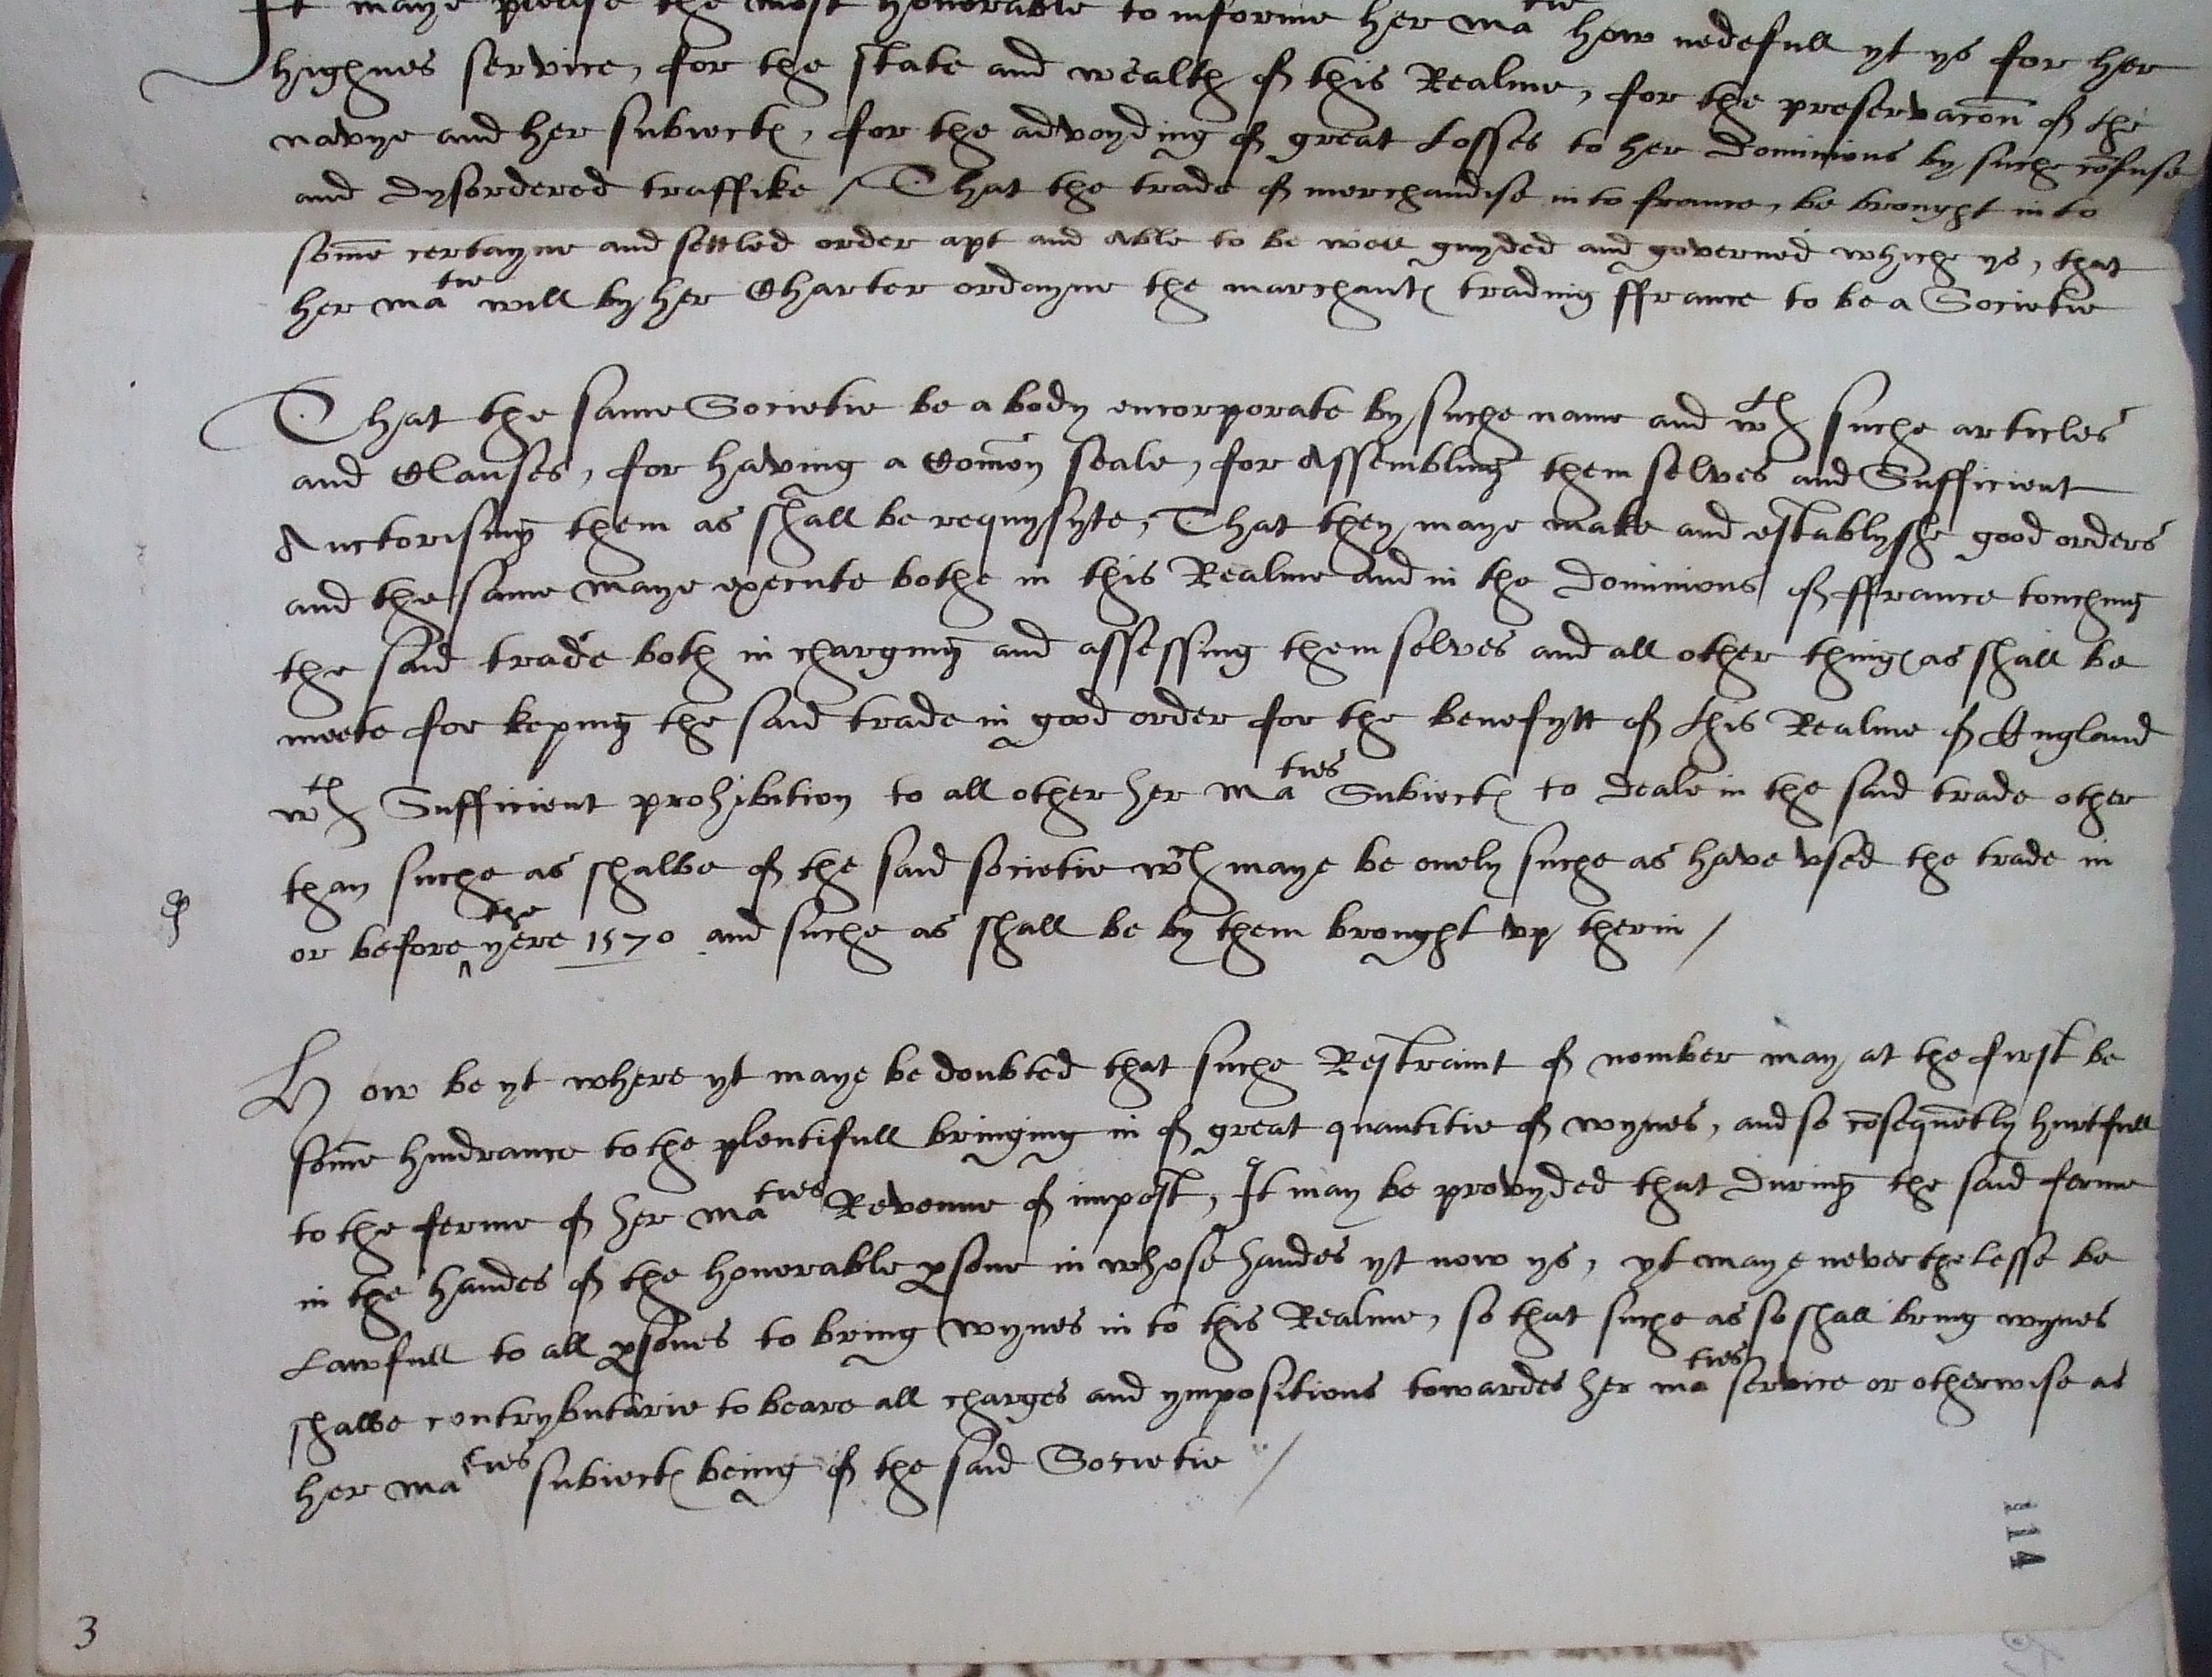 It maye please the most honorable to informe her ma^tie how nedefull yt ys for her
highnes service, for the state and wealth of this Realme, for the preservac̄on of the
navye and her subiectes, for the advoyding of great Losses to her Dominions by suche cōfuse
and dysordered traffike / That the trade of merchandise in to france, be brought in to
som̄e certayne and settled order apt and able to be well guyded and governed whiche ys, that
her ma^tie will by her Charter ordayne the marchantes trading ffrance to be a Societie
That the same Societie be a body encorporate by suche name and w^th suche articles
and Clauses, for having a Com̄on seale, for Assembling them selves and Sufficient
Auctorising them as shall be requysyte, That they maye make and establysshe good orders
and the same maye execute bothe in this Realme and in the Dominions of ffrance touching
the said trade both in charging and assessing them selves and all other thinges as shall be
meete for keping the said trade in good order for the benefytt of this Realme of England
w^th Sufficient prohibition to all other her ma^ties Subiectes to deale in the said trade other
than suche as shalbe of the said societie w^ch maye be onely suche as have vsed the trade in
or before ^the yere 1570 and suche as shall be by them brought vp therin /
How be yt where yt maye be doubted that suche Restraint of nomber may at the first be
som̄e hindrance to the plentifull bringing in of great quantitie of wynes, and so cōsequētly hurtfull
to the ferme of her ma^ties Revenue of impost, It may be provyded that during the said ferme
in the handes of the honorable ꝑsone in whose handes yt now ys, yt maye never the lesse be
Lawfull to all ꝑsones to bring wynes in to this Realme, so that suche as so shall bring wynes
shalbe contrybutarie to beare all charges and ympositions towardes her ma^ties service or otherwise as
her ma^ties subiectes being of the said Societie /
114
3